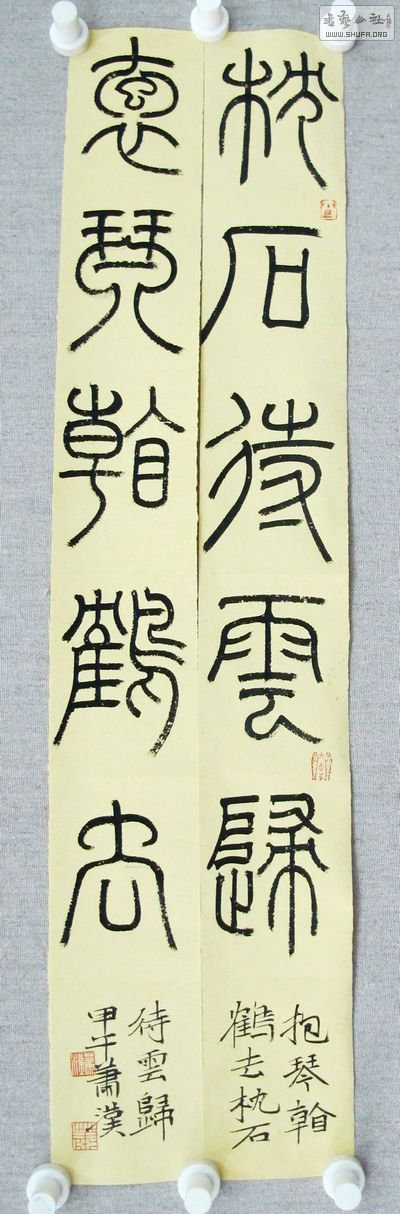 書藝公社
WWW.SHUFA.ORG
枕石待雲歸
袌琴看鶴去
抱琴看
鶴去枕石
待雲歸
甲午蕭漢